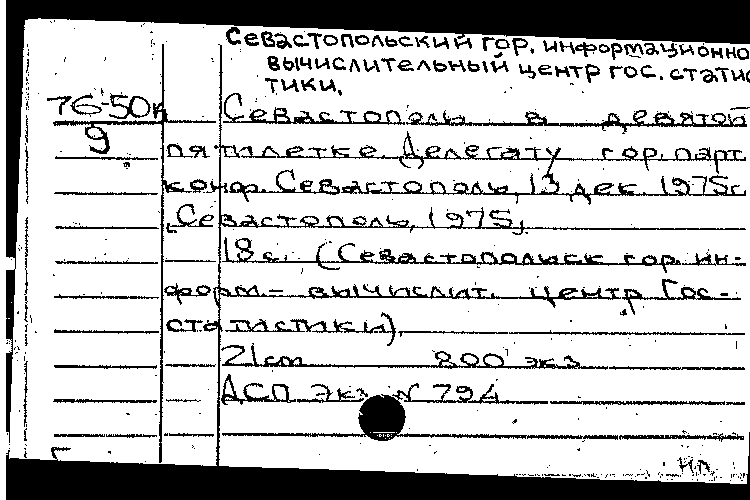 Севастопольский гор. информационно
вычислительный центр гос. статис
тики.
76-50к Севастополь в девятой
9 пятилетке. Делегату гор. парт.
конф. Севастополь, 13 дек. 1975г.
[Севастополь, 1975]
18 с. (Севастопольск гор. ин-
форм.- вычислит. центр Гос-
статистики).
21 cm 800 экз
ДСП Экз N 794